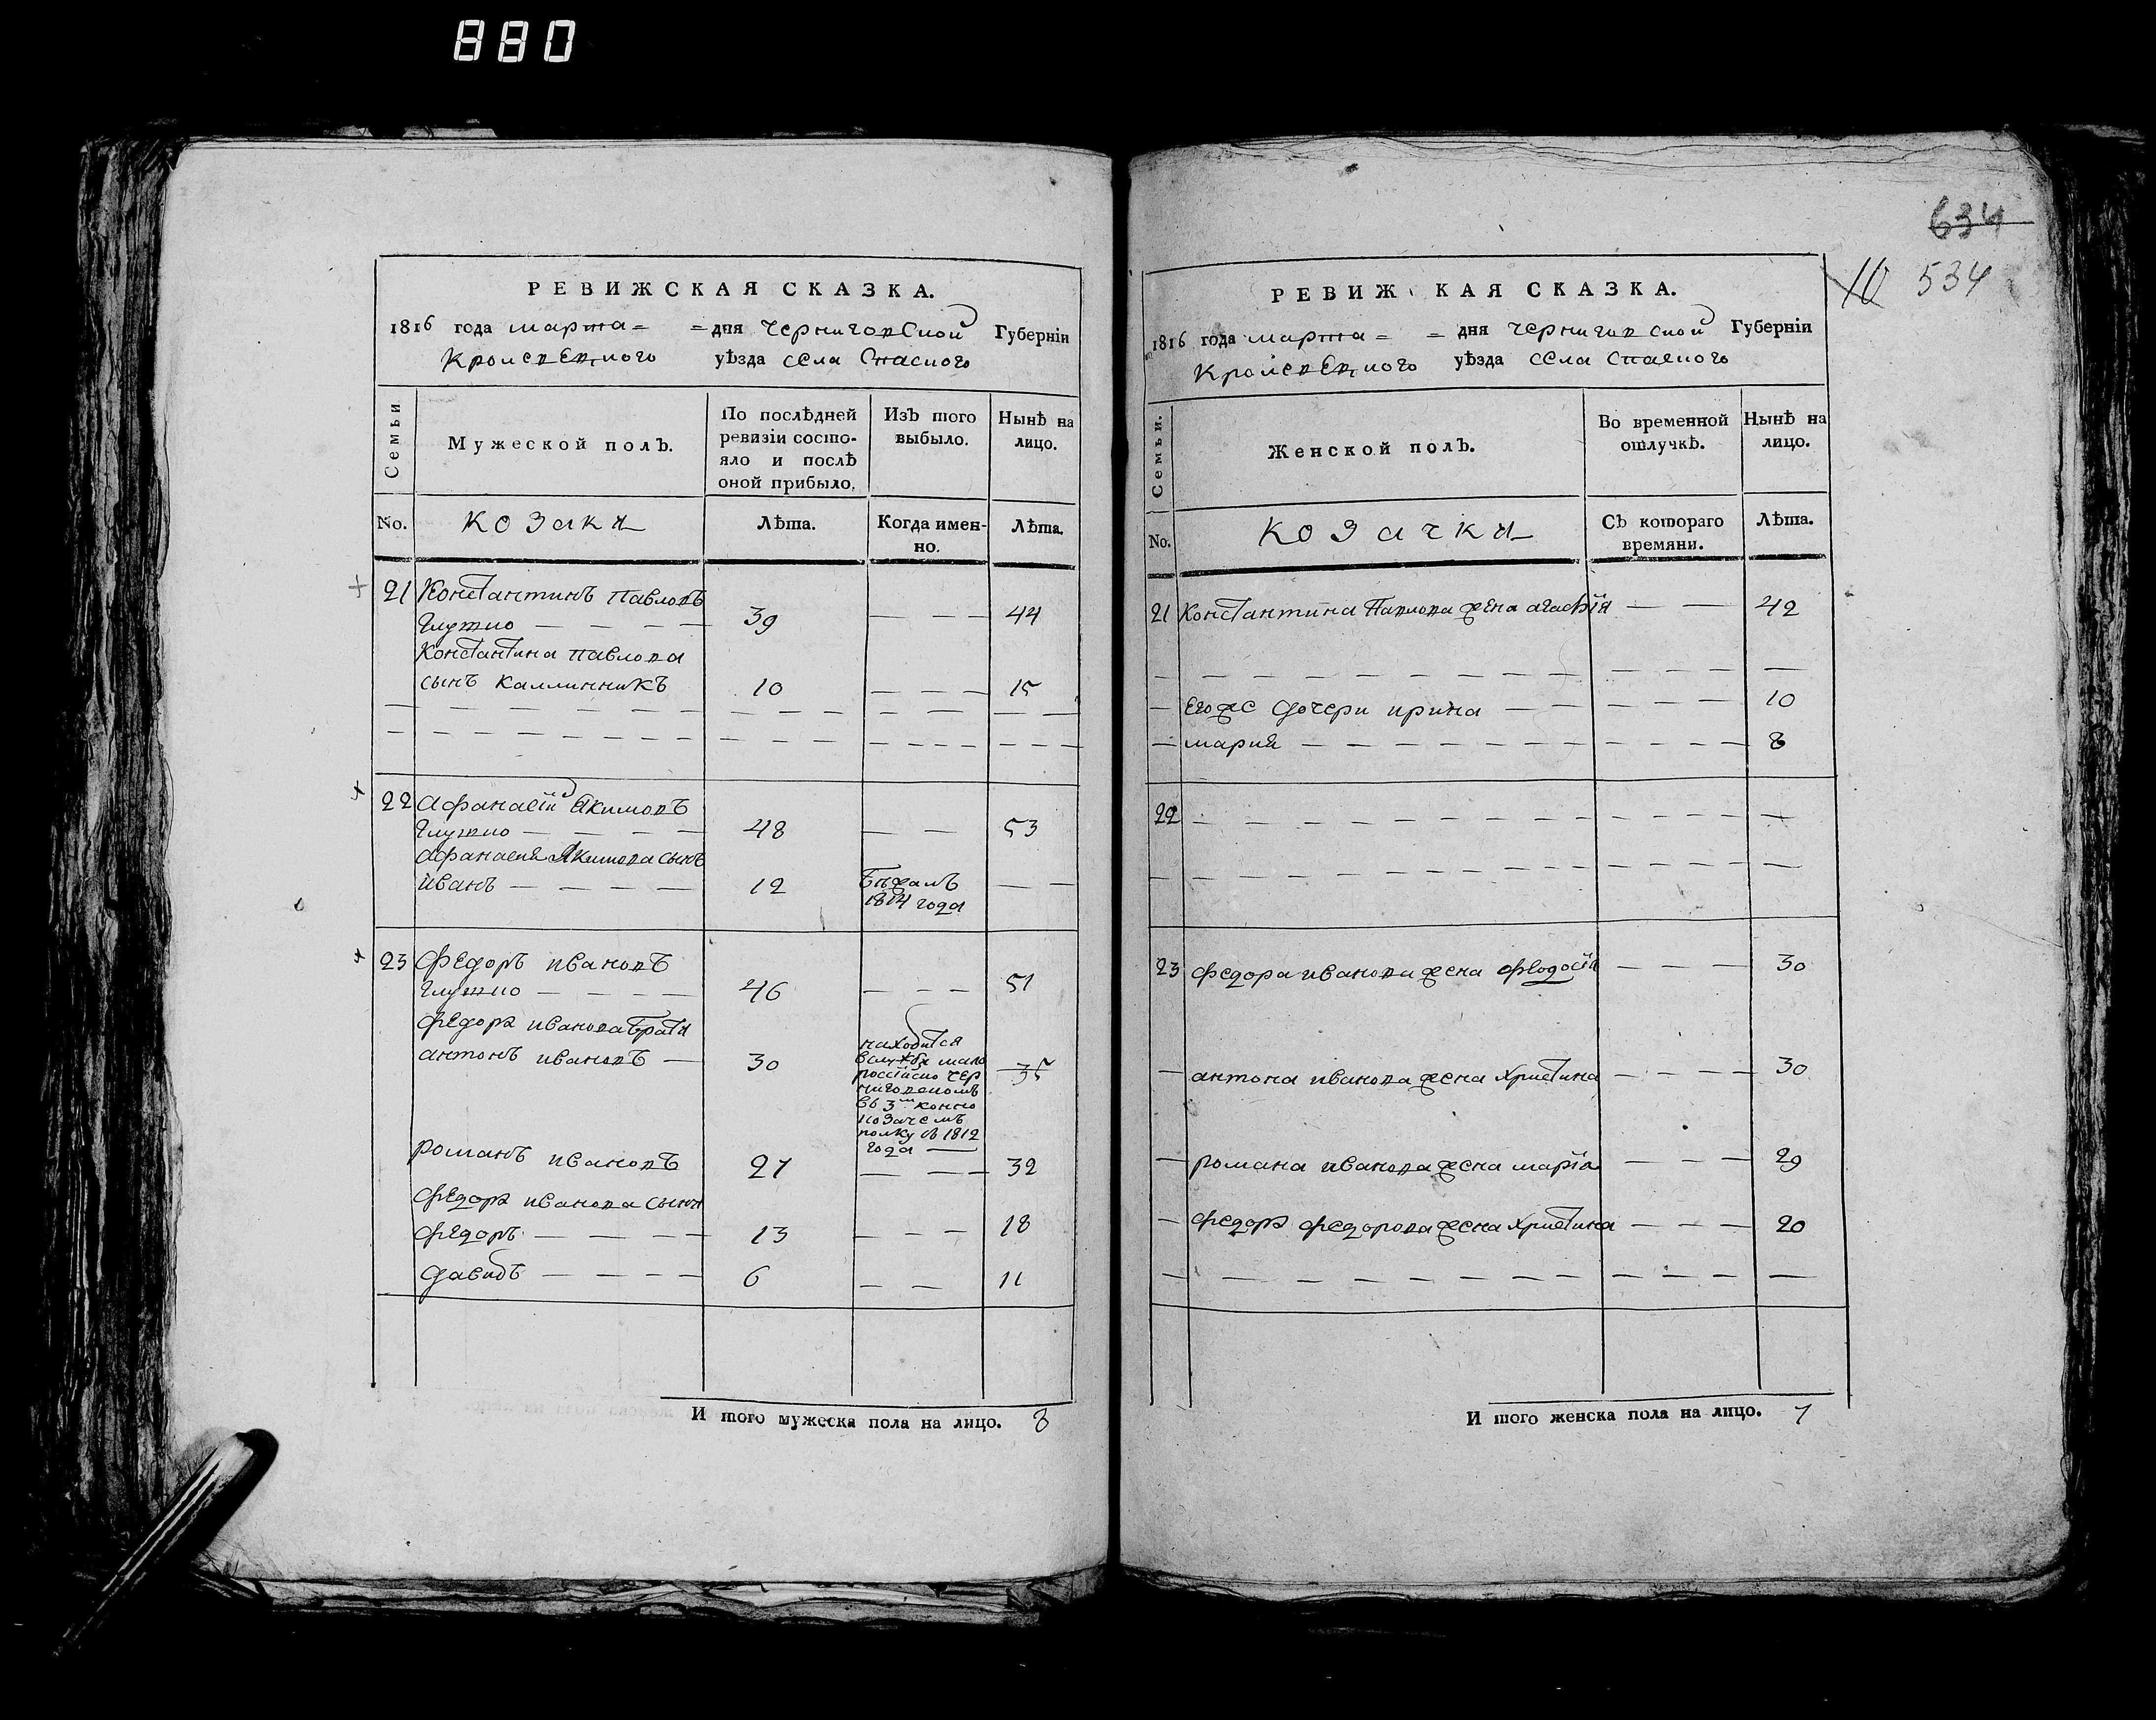 880
РЕВИЖСКАЯ СКАЗКА.
1816 года марта = = дня Черниговской Губерніи
Кролевецкого уѣзда села Спаского
Семьи
Мужеской полъ.
По послѣдней ревизіи состо-
яло и послѣ
оной прибыло.
Изъ того
выбыло.
Нынѣ на
лицо.
No.
козаки
Лѣта.
Когда имен-
но.
Лѣта.
21 Константинъ Павловъ
Глушко — — — — 39 — — — 44
Константина Павлова
сынъ Каллинникъ 10 — — — 15
22 Афанасій Якимовъ
Глушко — — — — 48 — — 53
Афанасия Якимова сынъ
Иванъ — — — — 12 Бѣжалъ — —
1814 года
23 Федоръ Ивановъ
Глушко — — — — 46 — — — 51
Федора Иванова братя
Антонъ Ивановъ — 30 35
находится
вслужбѣ мало
россійско чер
ниговском
въ 3м конно
козачемъ
полку съ 1812
года —
Романъ Ивановъ 27 — — — 32
Федора Иванова сыны
Федоръ — — — — 13 — — — 18
Давидъ — — — — 6 — — 11
И того мужеска пола на лицо. 8
634
10 534
РЕВИЖ КАЯ СКАЗКА.
1816 года марта = = дня Черниговской Губерніи
Кролевецкого уѣзда села Спаского
Семьи.
Женской полъ.
Во временной
отлучкѣ.
Нынѣ на
лицо.
No.
козачки
Съ котораго
времяни.
Лѣта.
21 Константина Павлова жена Агафія — — 42
— Егоже дочери Ирина — — — — — 10
— Мария — — — — — — — — — — 8
22
23 Федора Иванова жена Феодосія — — — 30
— Антона Иванова жена Христина — — — — 30
— Романа Иванова жена Марія — — — 29
— Федора Федорова жена Христина — — — 20
И того женска пола на лицо. 7